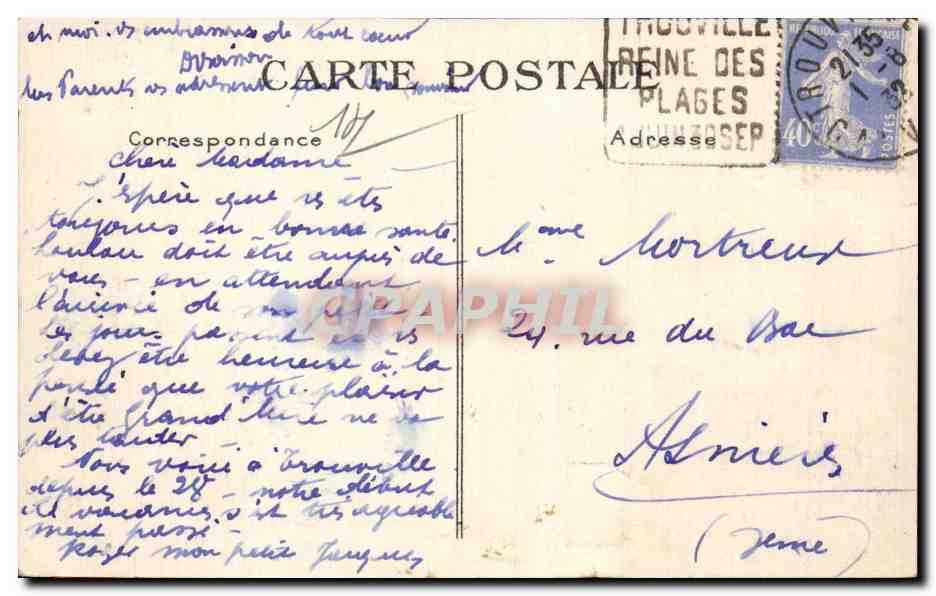 et moi vs embrassons de tout coeur
mes Parents vs adressent
CARTE POSTALE
Correspondance
Adresse
TROUVILLE
REINE DES
PLAGES
TROUVILLE
21 35
1 -8
CALV
40c
POSTES
Chère Madame
J'espère que vs êtes
toujours en bonne santé.
Loulou doit être auprès de
vous - en attendant
l'arrivée de son petit
les jours passent et vs
devez être heureuse à la
pensée que votre plaisir
d'être Grand'Mère ne va
pas tarder -
Nous voici à Trouville
depuis le 28 - notre début
de vacances s'est très agréable
ment passé -
Roger mon petit Jacques
Mme Mortreux
24. rue du Bac
Asnières
(Seine)
CPAPHIL